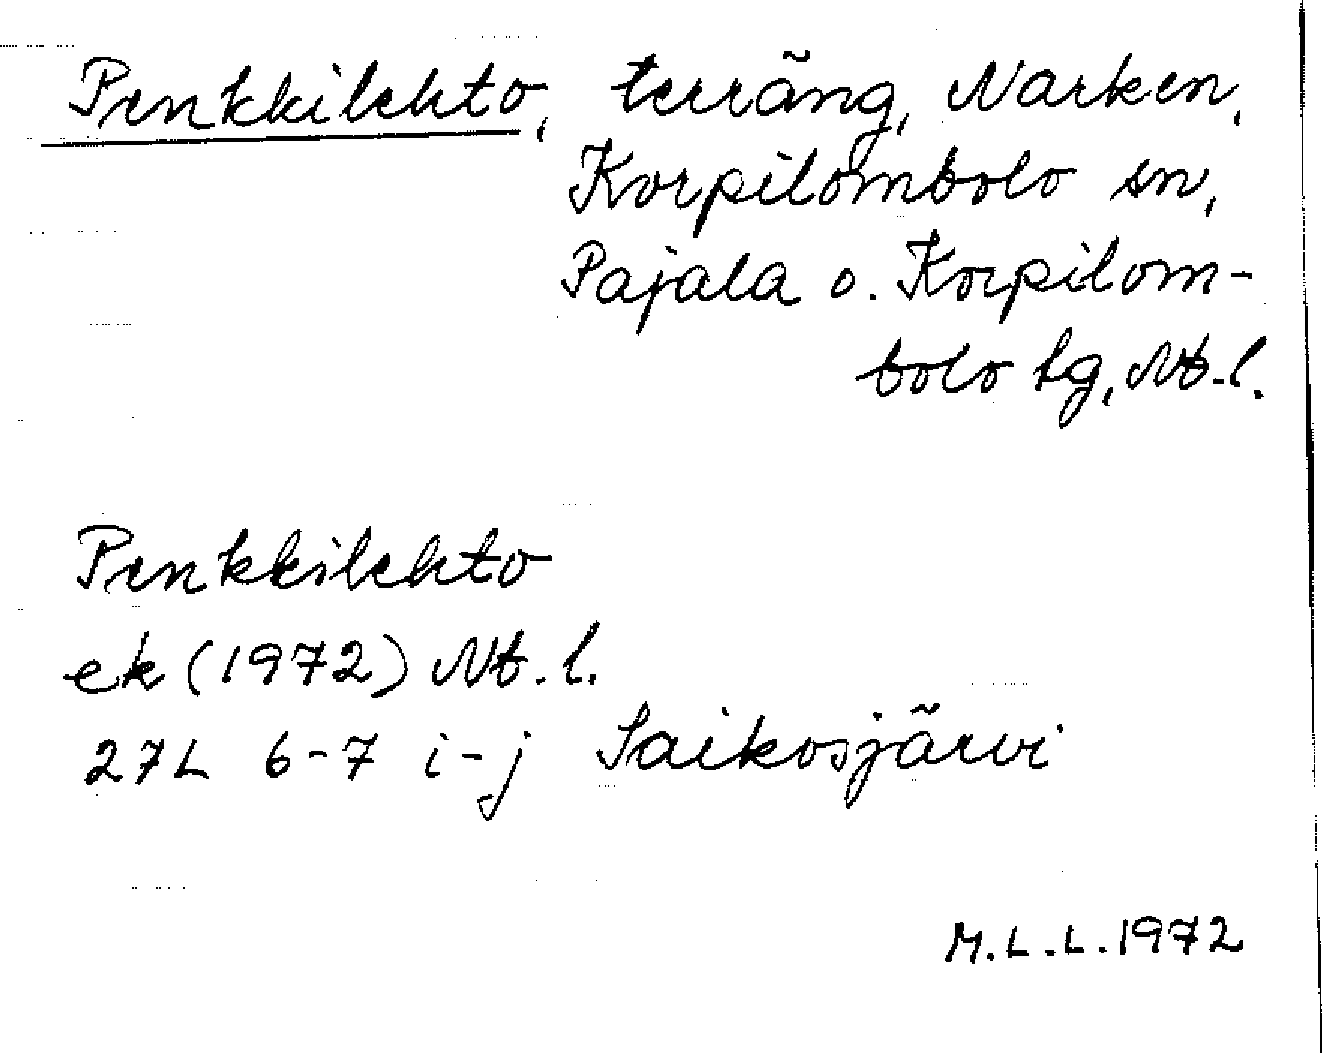 Penkkilehto, terräng, Narken,
Korpilombolo sn,
Pajala o. Korpilom-
bolo tg, Nb. l.
Penkkilehto
ek (1972) Nb. l.
27L 6-7 i-j Saikosjärvi
M.L.L. 1972